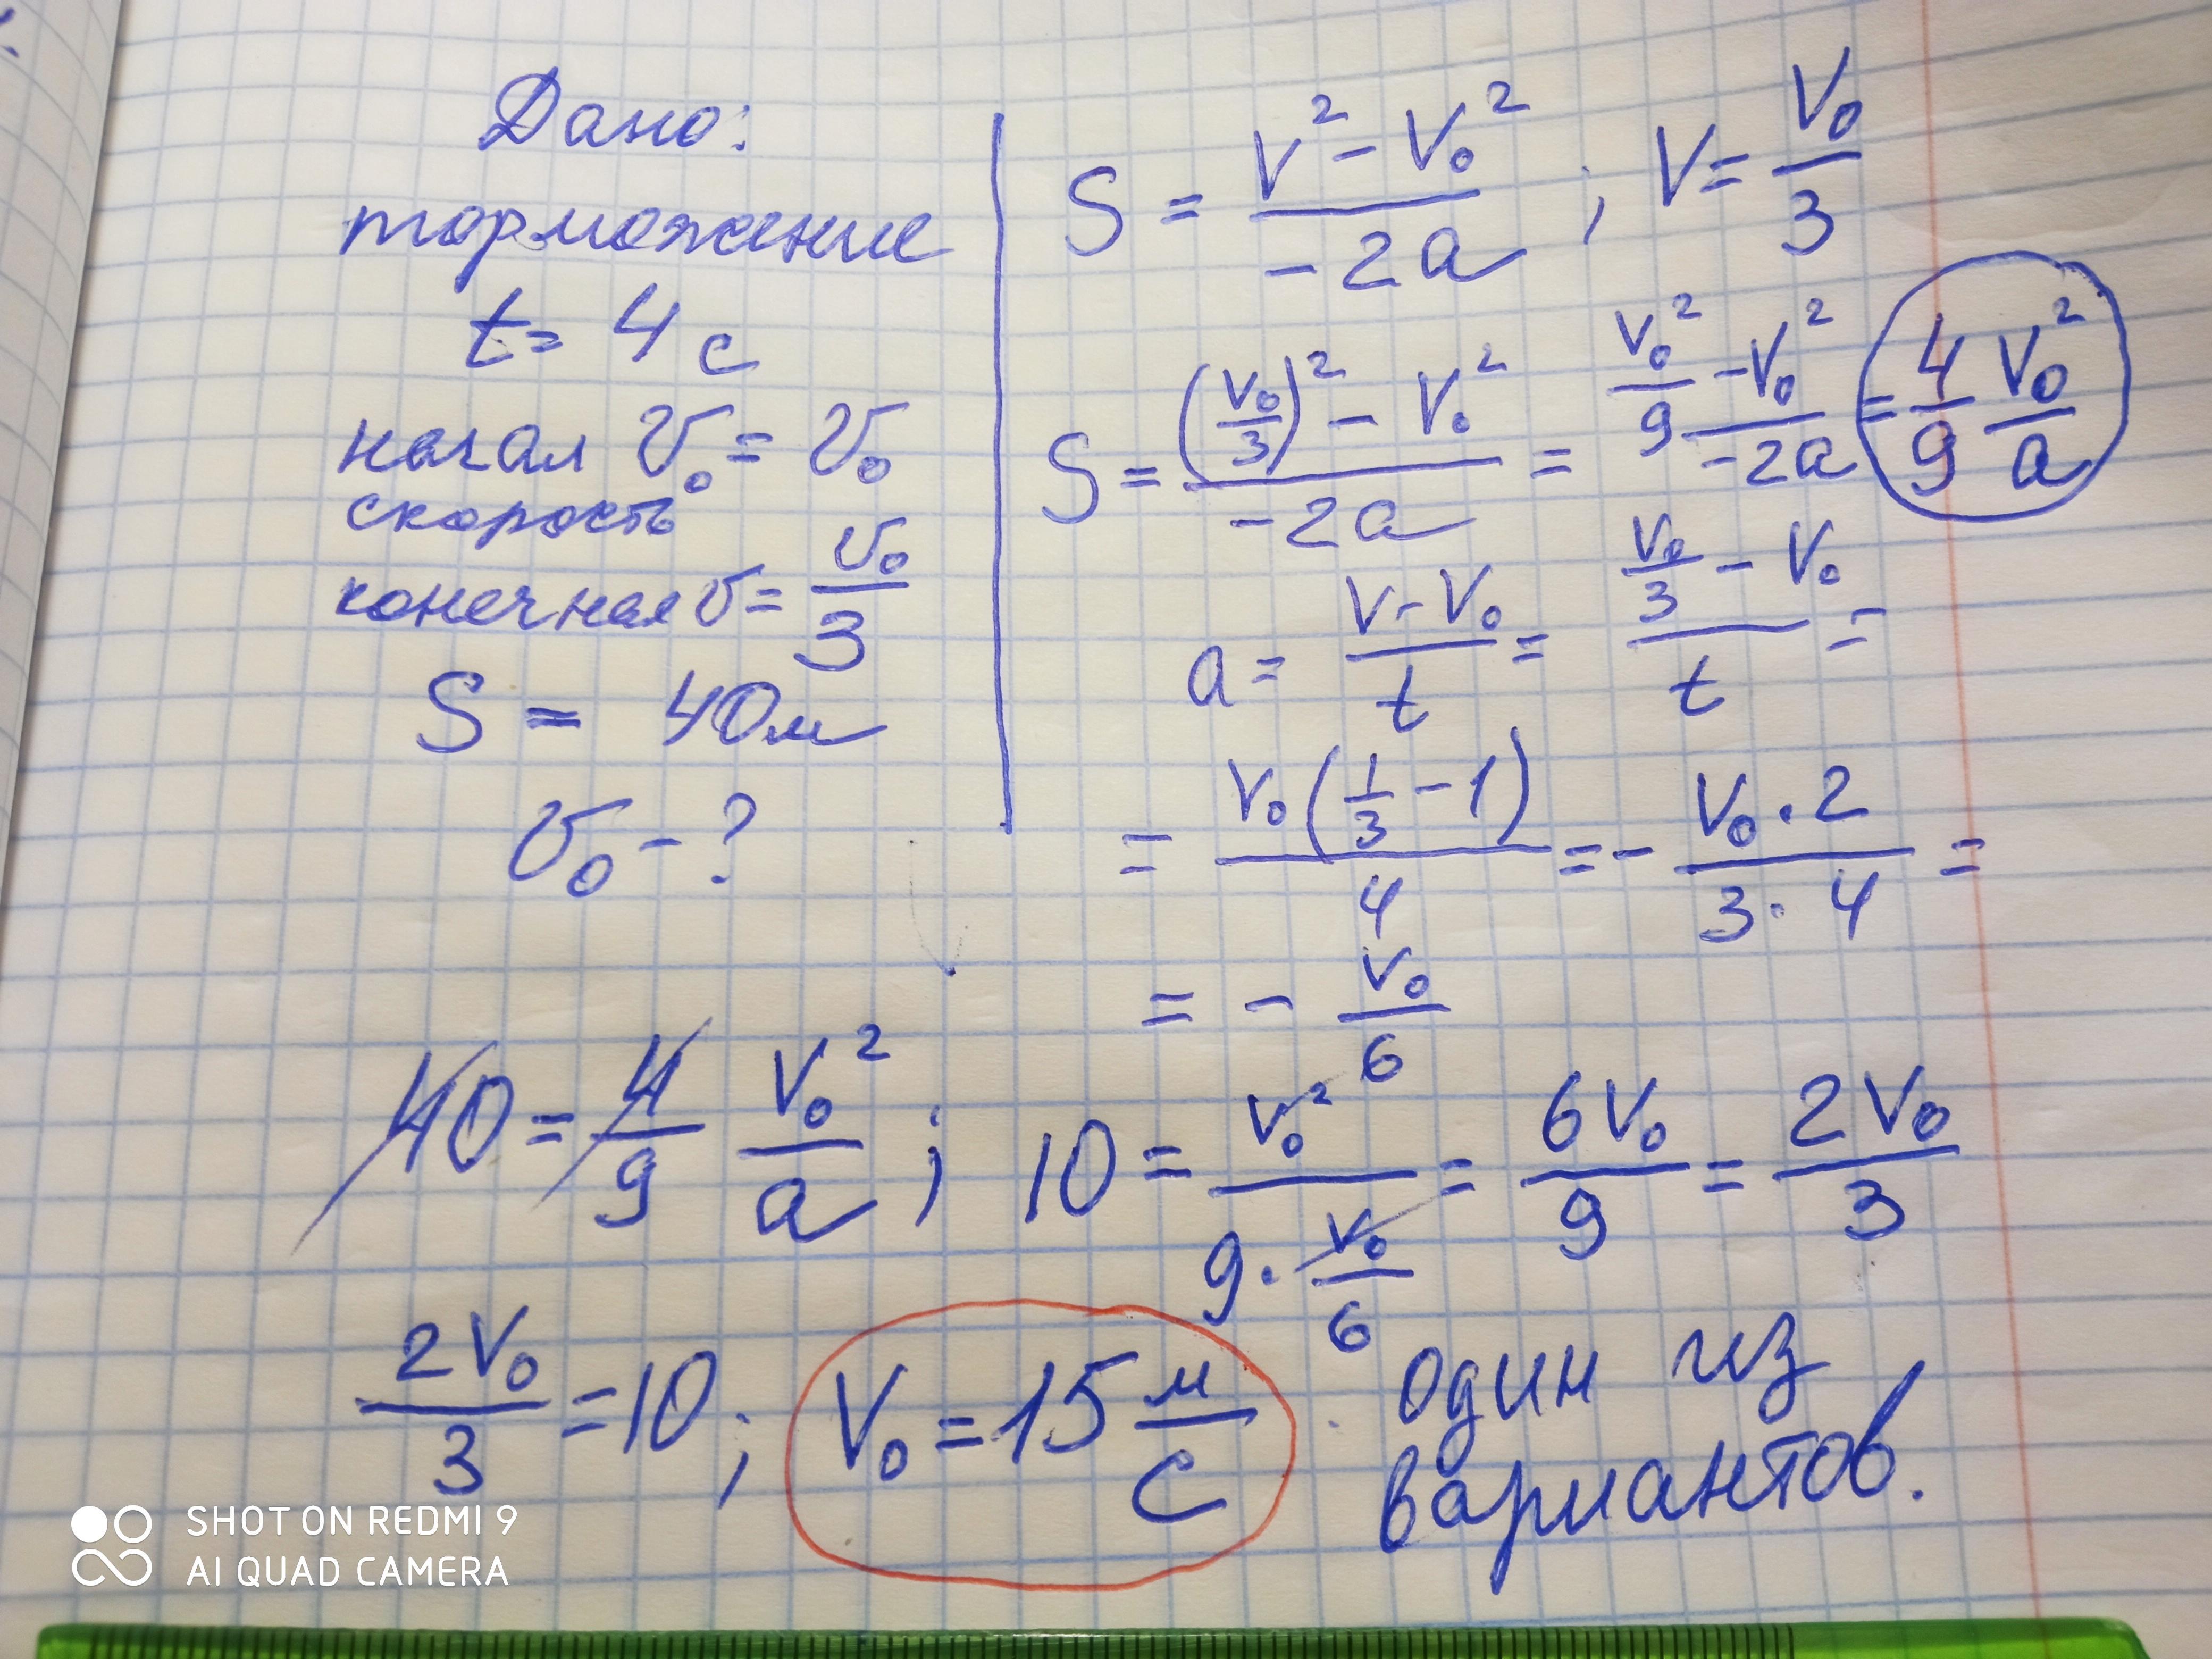 Дано:
торможение
t = 4 с
начал v₀ = v₀
скорость
конечная v = v₀/3
S = 40м
v₀ - ?
S = (V² - V₀²)/(-2a) ; V = V₀/3
S = ((V₀/3)² - V₀²)/(-2a) = (V₀²/9 - V₀²)/(-2a) = 4/9 V₀²/a
a = (V - V₀)/t = (V₀/3 - V₀)/t =
= V₀(1/3 - 1)/4 = - (V₀·2)/(3·4) =
= - V₀/6
40 = 4/9 V₀²/a ; 10 = V₀²/(9·V₀/6) = 6V₀/9 = 2V₀/3
2V₀/3 = 10 ; V₀ = 15 м/с один из
вариантов.
SHOT ON REDMI 9
AI QUAD CAMERA